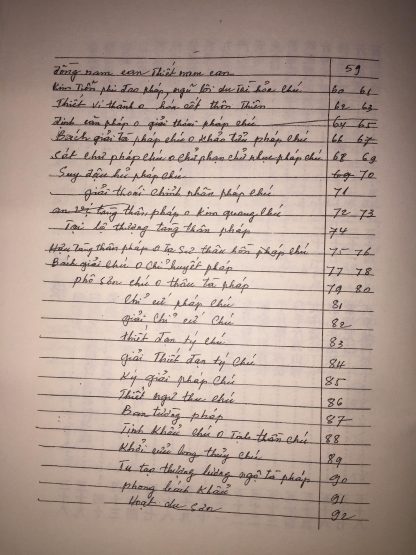 đồng nam can Thiết nam can 59
Kim Tiễn phi đao pháp, ngũ lôi du Trì hỏa Chú 60 61
Thiết vi thành o hóa cốt thôn Thiên 62 63
đình căn pháp o giải thoái pháp chú 64 65
Bách giải tà pháp chú o Khảo tẩu pháp chú 66 67
Sát chư pháp chú o chư phạn chư nhục pháp chú 68 69
Suy đậu hủ pháp chú 70
giải thoái Chỉnh nhân pháp chú 71
an vị tàng thân pháp o Kim quang Chú 72 73
Tại lộ thượng tàng thân pháp 74
tàng thân pháp o Tổ Sư thâu hồn pháp chú 75 76
Bách giải chú o Chỉ huyết pháp 77 78
phổ Sám chú o thâu tà pháp 79 80
Chỉ cứ pháp chú 81
giải Chỉ cứ Chú 82
thiết đàn tý chú 83
giải Thiết đàn tý Chú 84
Ký giải pháp Chú 85
Thiết ngữ thư chú 86
Ban tường pháp 87
Tịnh Khẩu chú o Tịnh thân Chú 88
Khởi cửu long thủy chú 89
Tu tạo thượng lương ngộ tà pháp 90
phong bính Khẩu 91
Hoạt du sản 92